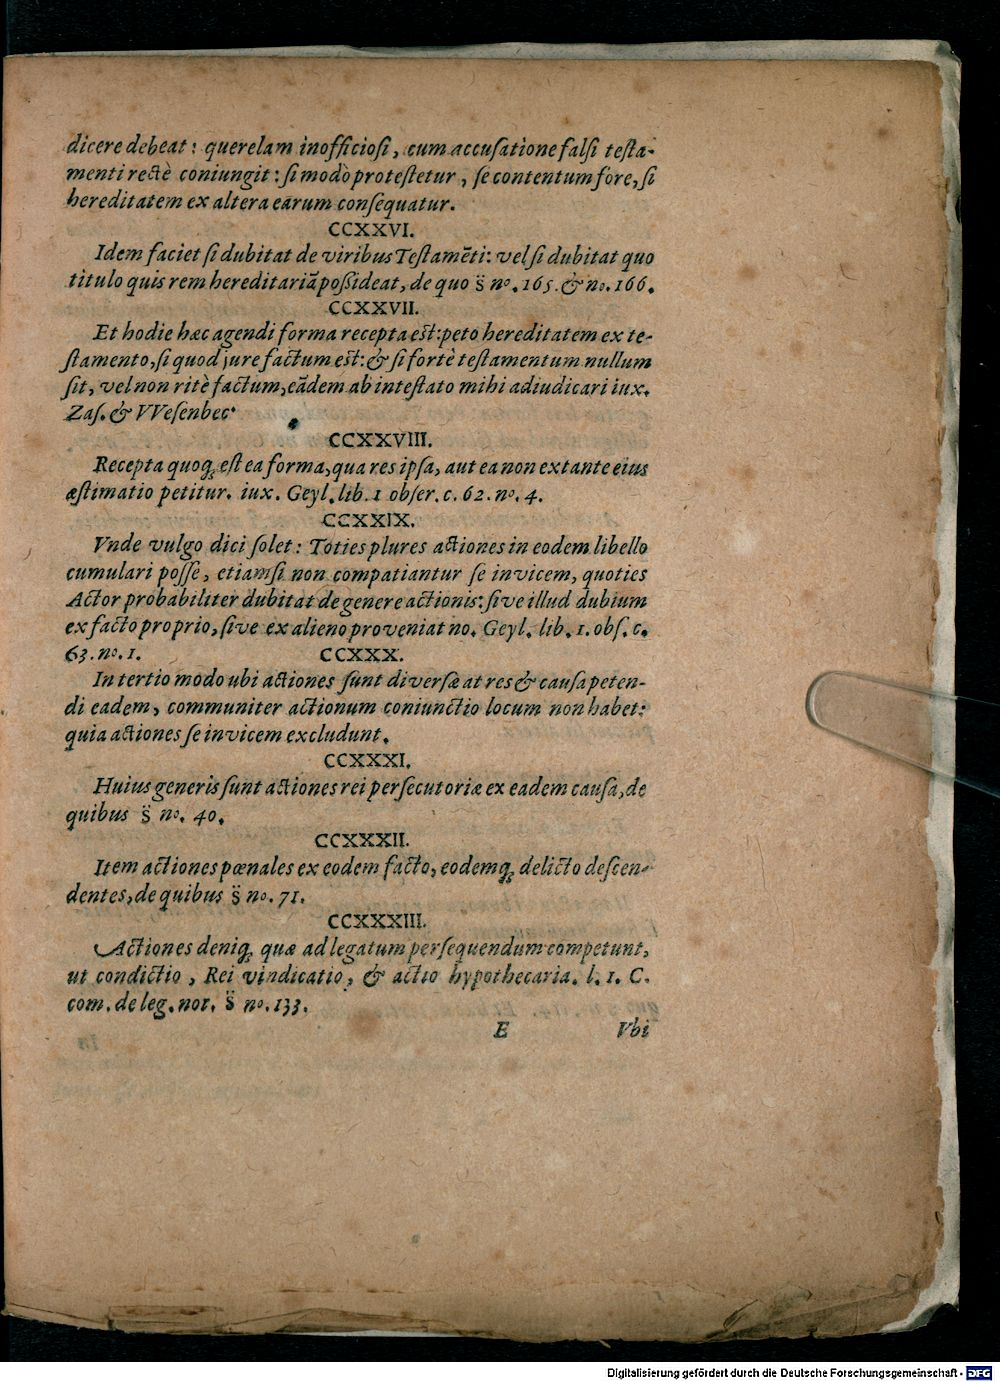 dicere debeat : querelam inofficiosi, cum accusatione falsi testa-
menti rectè coniungit : si modò protestetur, se contentum fore, si
hereditatem ex altera earum consequatur.
CCXXVI.
Idem faciet si dubitat de viribus Testamẽti: vel si dubitat quo
titulo quis rem hereditariã possideat, de quo s̈ no. 165. & no. 166.
CCXXVII.
Et hodie hæc agendi forma recepta est: peto hereditatem ex te-
stamento, si quod jure factum est: & si fortè testamentum nullum
sit, vel non ritè factum, eãdem ab intestato mihi adiudicari iux.
Zas. & VVesenbec.
CCXXVIII.
Recepta quoq; est ea forma, qua res ipsa, aut ea non extante eius
æstimatio petitur. iux. Geyl. lib. 1 obser. c. 62. no. 4.
CCXXIX.
Vnde vulgo dici solet : Toties plures actiones in eodem libello
cumulari posse, etiamsi non compatiantur se invicem, quoties
Actor probabiliter dubitat de genere actionis: sive illud dubium
ex facto proprio, sive ex alieno proveniat no. Geyl. lib. 1. obs. c.
63. no. 1. CCXXX.
In tertio modo ubi actiones sunt diversæ at res & causa peten-
di eadem, communiter actionum coniunctio locum non habet:
quia actiones se invicem excludunt.
CCXXXI.
Huius generis sunt actiones rei persecutoriæ ex eadem causa, de
quibus s̈ no. 40.
CCXXXII.
Item actiones pœnales ex eodem facto, eodemq; delicto descen-
dentes, de quibus s̈ no. 71.
CCXXXIII.
Actiones deniq; quæ ad legatum persequendum competunt,
ut condictio, Rei vindicatio, & actio hypothecaria. l. 1. C.
com. de leg. not. s̈ no. 133.
E Vbi
Digitalisierung gefördert durch die Deutsche Forschungsgemeinschaft - DFG